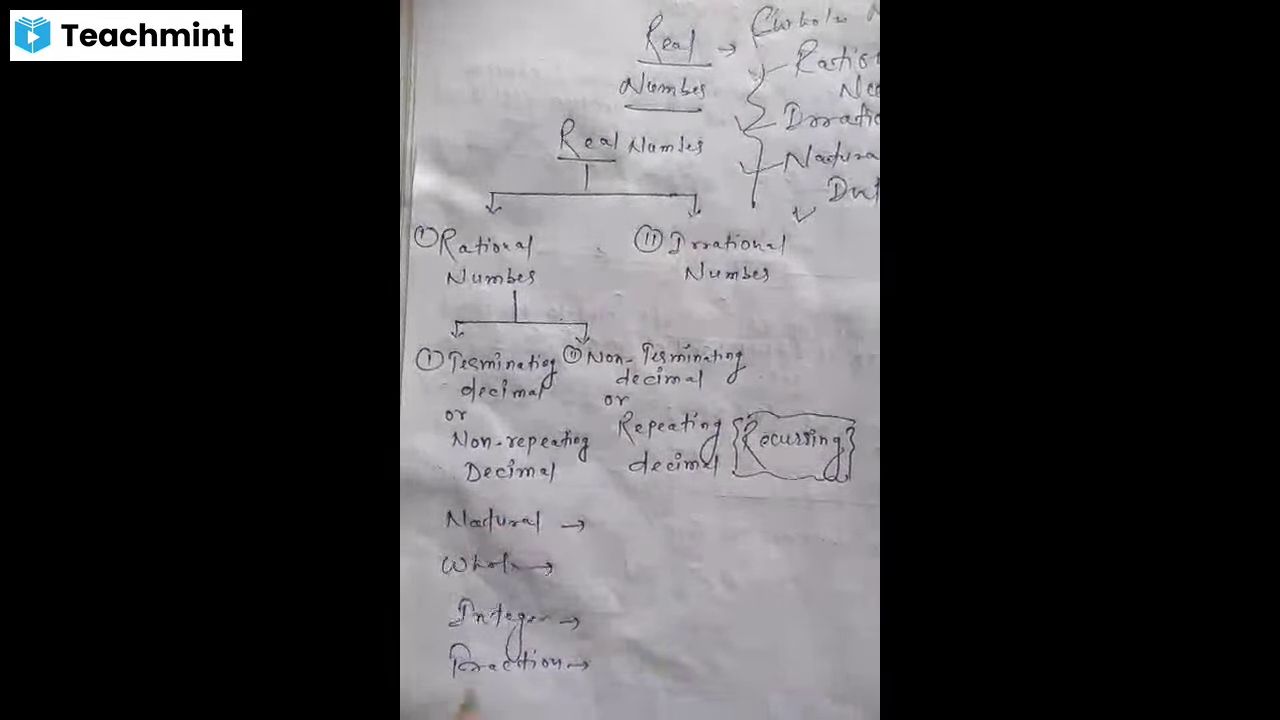 Teachmint
Real → Whole N
Number
Ratio
Nu
Irratio
Natura
Int
Real Number
① Rational
Number
② Irrational
Number
① Terminating
decimal
or
Non-repeating
Decimal
② Non-Terminating
decimal
or
Repeating
decimal
{Recurring}
Natural →
Whole →
Integer →
Fraction →